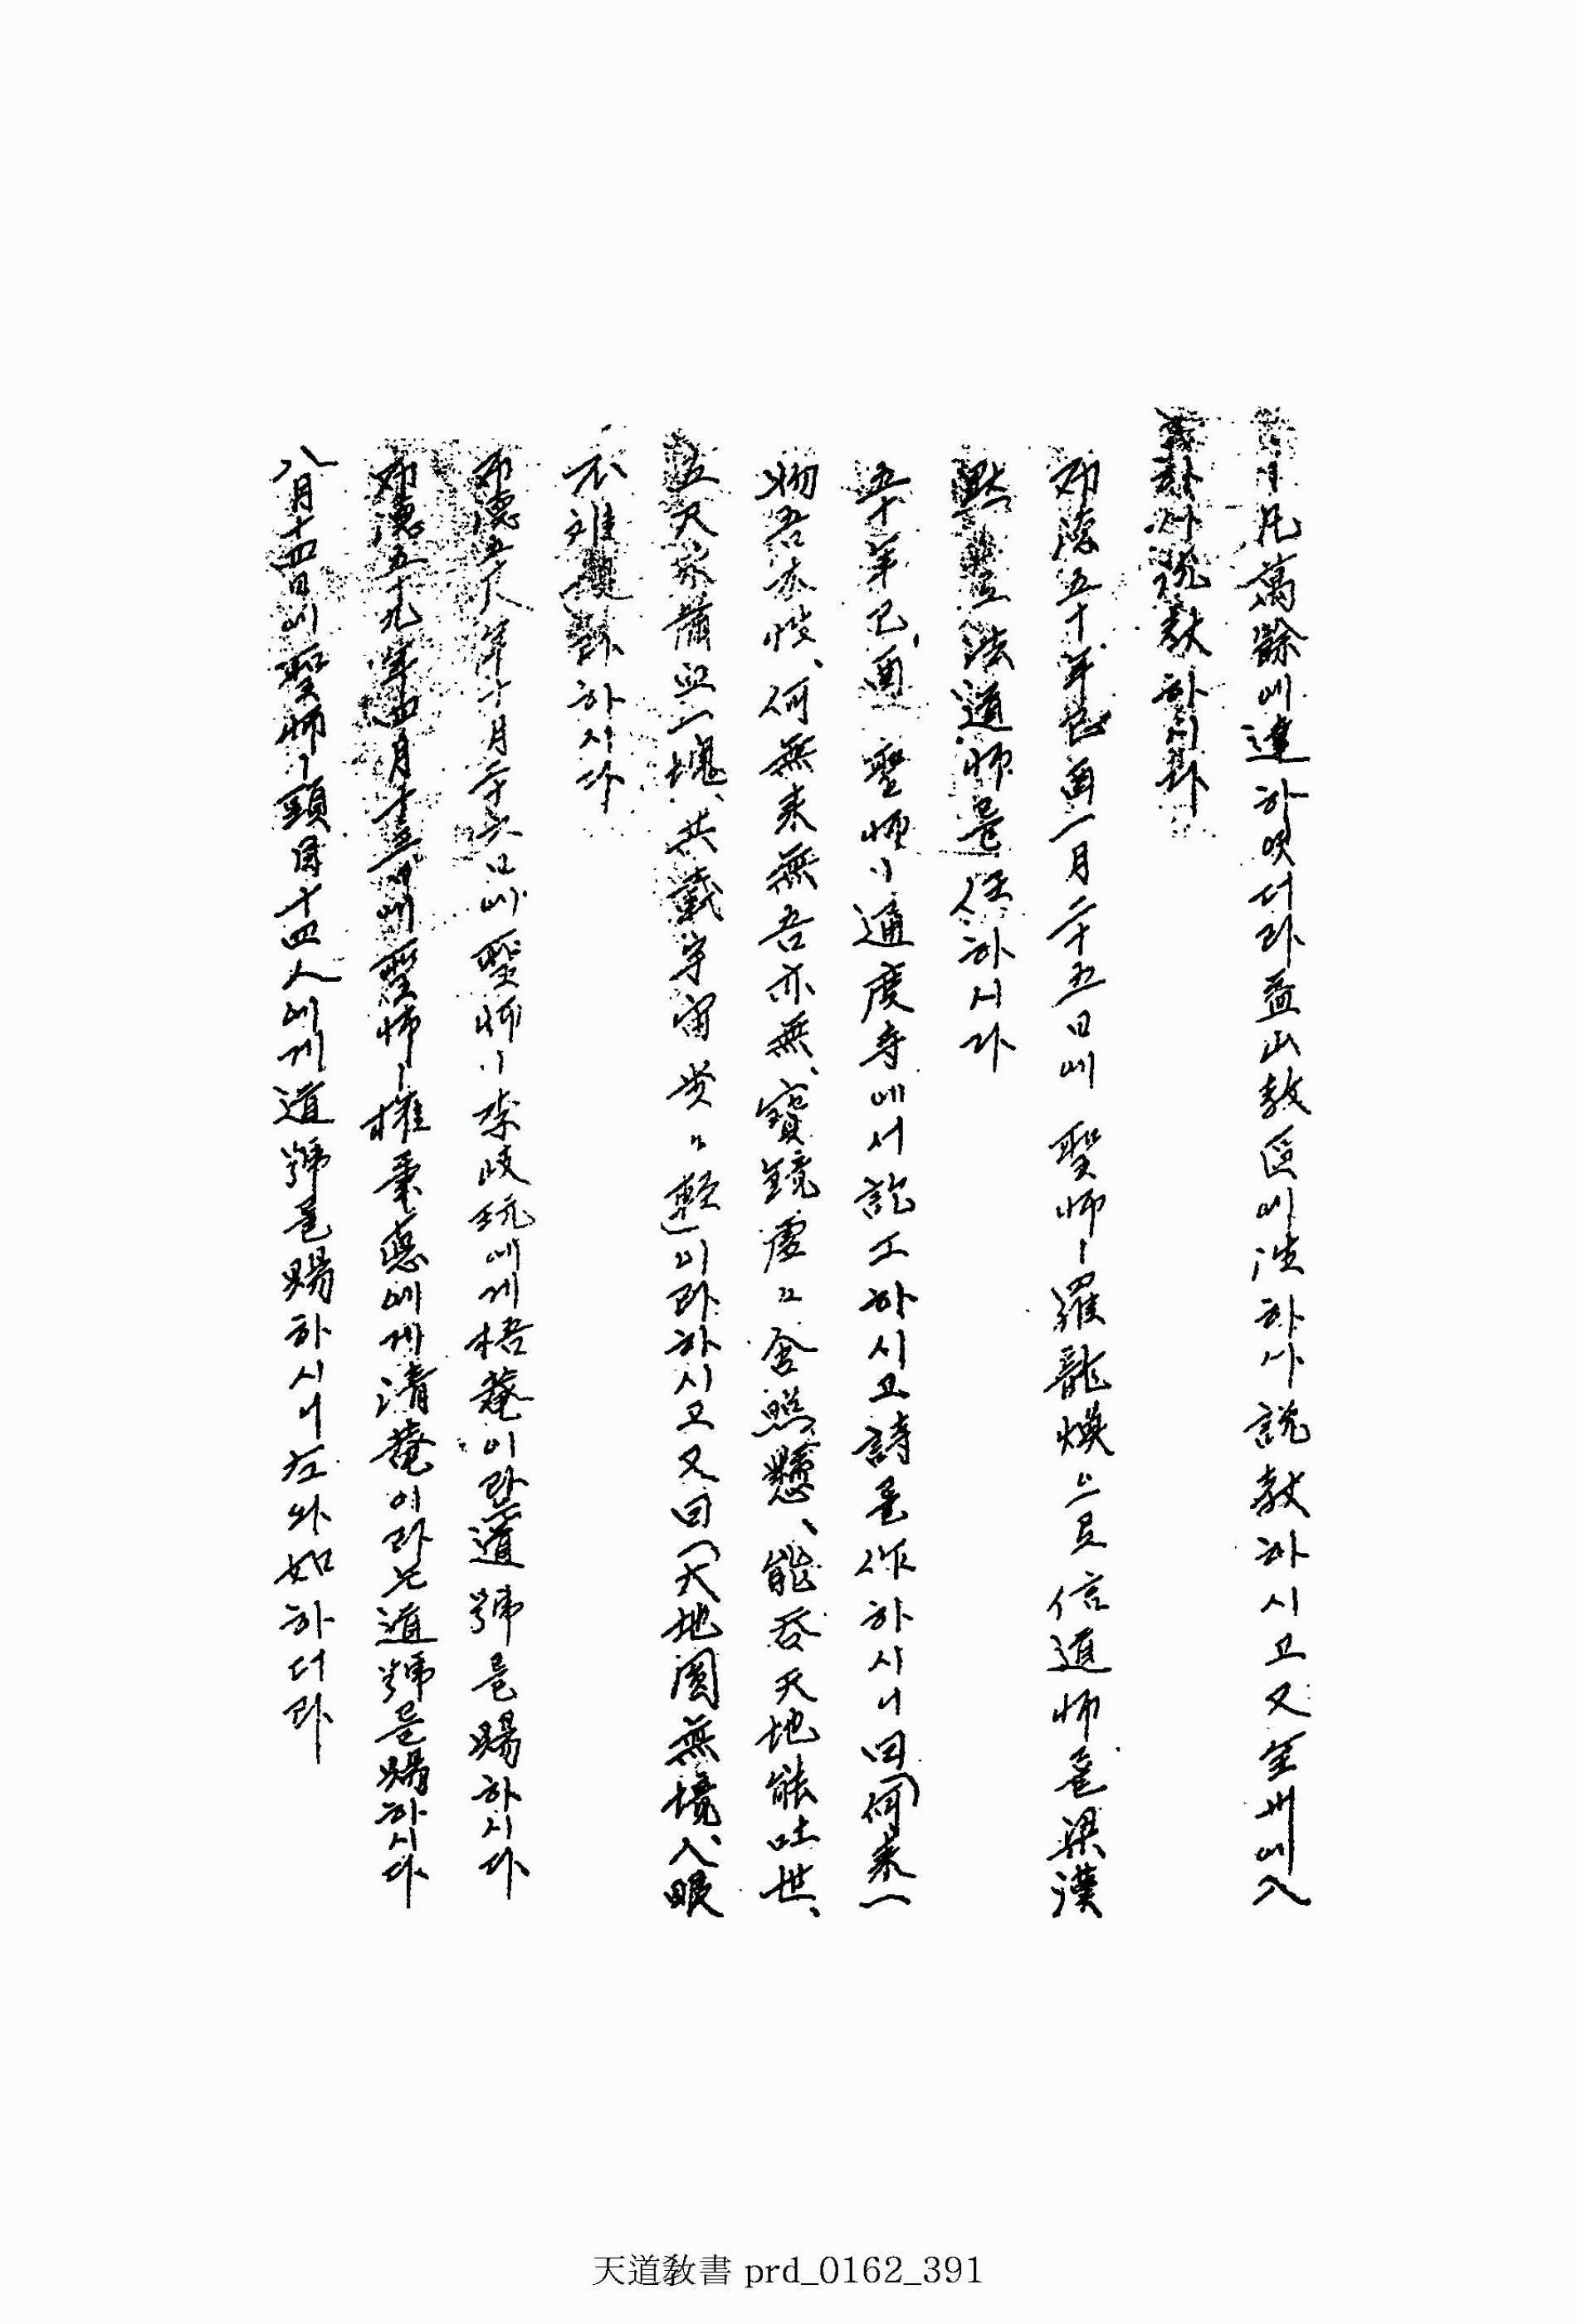 ㅣ 凡萬餘에 達하얏더라 益山敎區에 涖하사 說敎하시고 又 全州에 入
하사 說敎하시다
布德五十年己酉一月二十五日에 聖師ㅣ 羅龍煥으로 信道師를 梁漢
默 法道師를 任하시다
五十年己酉 聖師ㅣ 通度寺에서 訖工하시고 詩를 作하시니 曰「何來一
物吾本性、何無來無吾亦無、寶鏡虛〻含照懸、能呑天地能吐世、
五尺 一塊、共載宇宙 〻輕」이라 하시고 又曰「天地圓無境、入眼
不難 하시다
布德五十八年十月二十六日에 聖師ㅣ 李岐琓에게 梧菴이란 道號를 賜하시다
布德五十九年四月十五日에 聖師ㅣ 權秉悳에게 淸菴이라는 道號를 賜하시다
八月十四日에 聖師ㅣ 頭目十四人에게 道號를 賜하시니 左와 如하더라
天道敎書 prd_0162_391